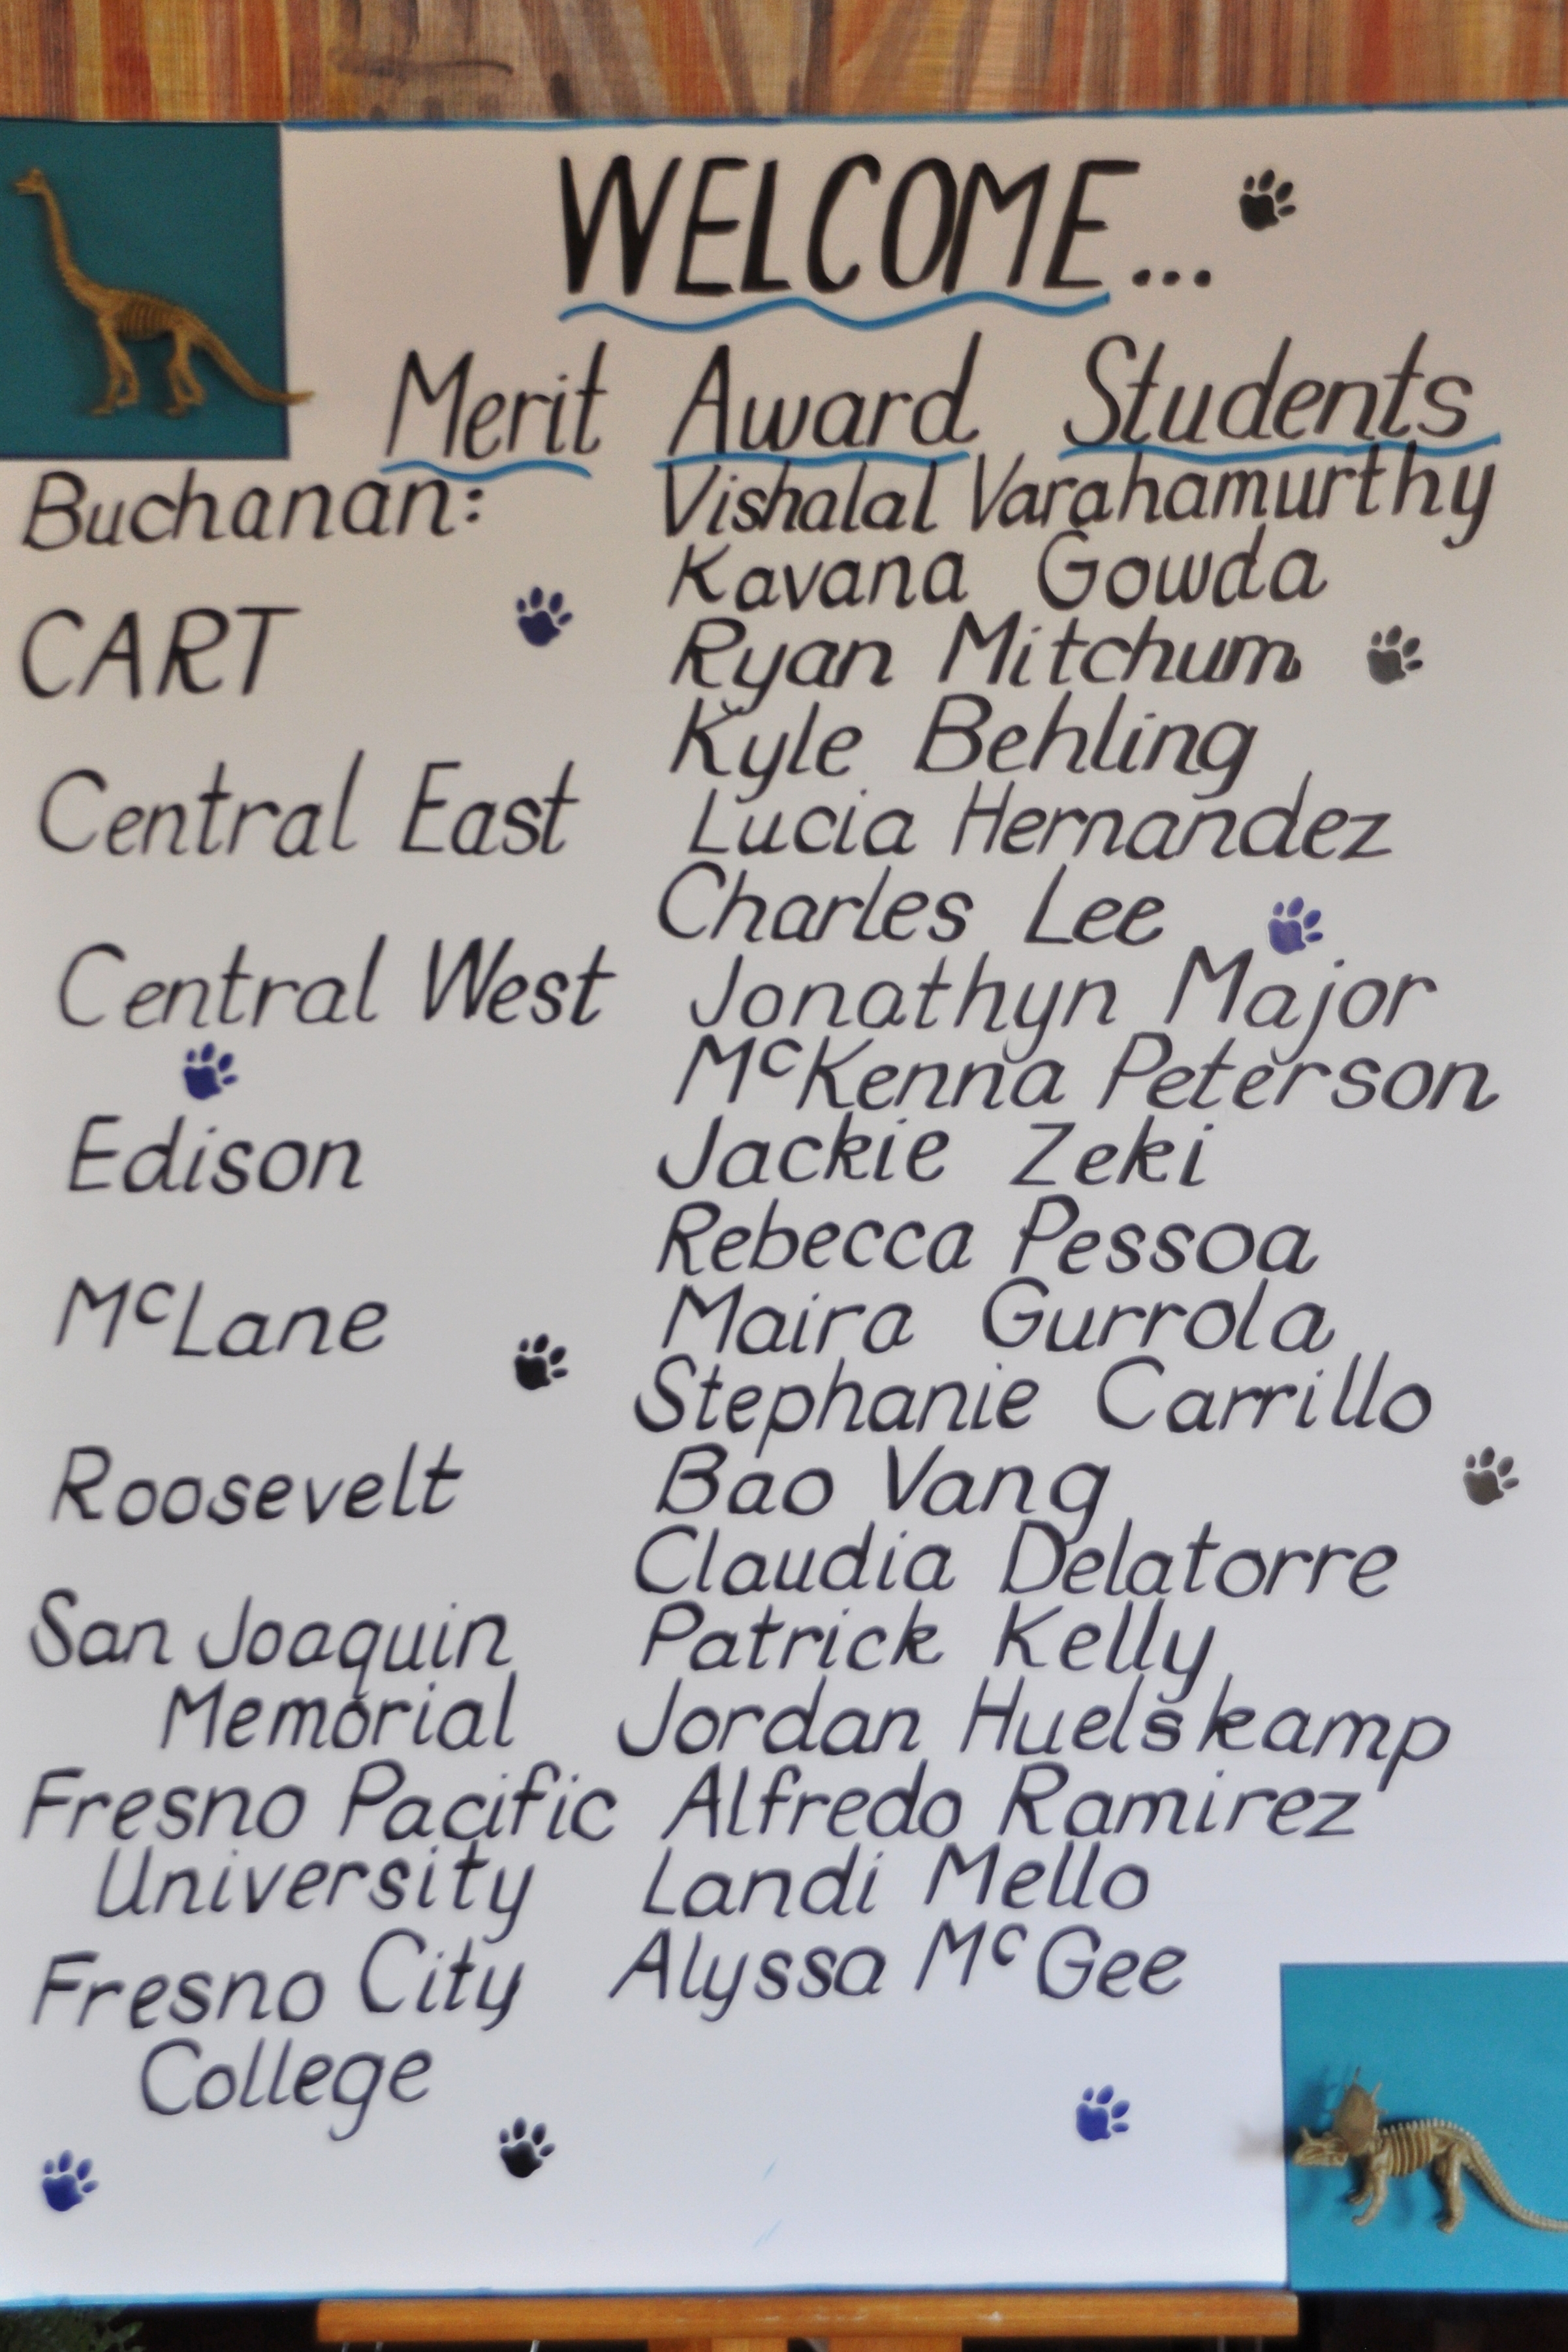 WELCOME...
Merit Award Students
Buchanan: Vishalal Varahamurthy
Kavana Gowda
CART Ryan Mitchum
Kyle Behling
Central East Lucia Hernandez
Charles Lee
Central West Jonathyn Major
McKenna Peterson
Edison Jackie Zeki
Rebecca Pessoa
McLane Maira Gurrola
Stephanie Carrillo
Roosevelt Bao Vang
Claudia Delatorre
San Joaquin Patrick Kelly
Memorial Jordan Huelskamp
Fresno Pacific Alfredo Ramirez
University Landi Mello
Fresno City Alyssa McGee
College